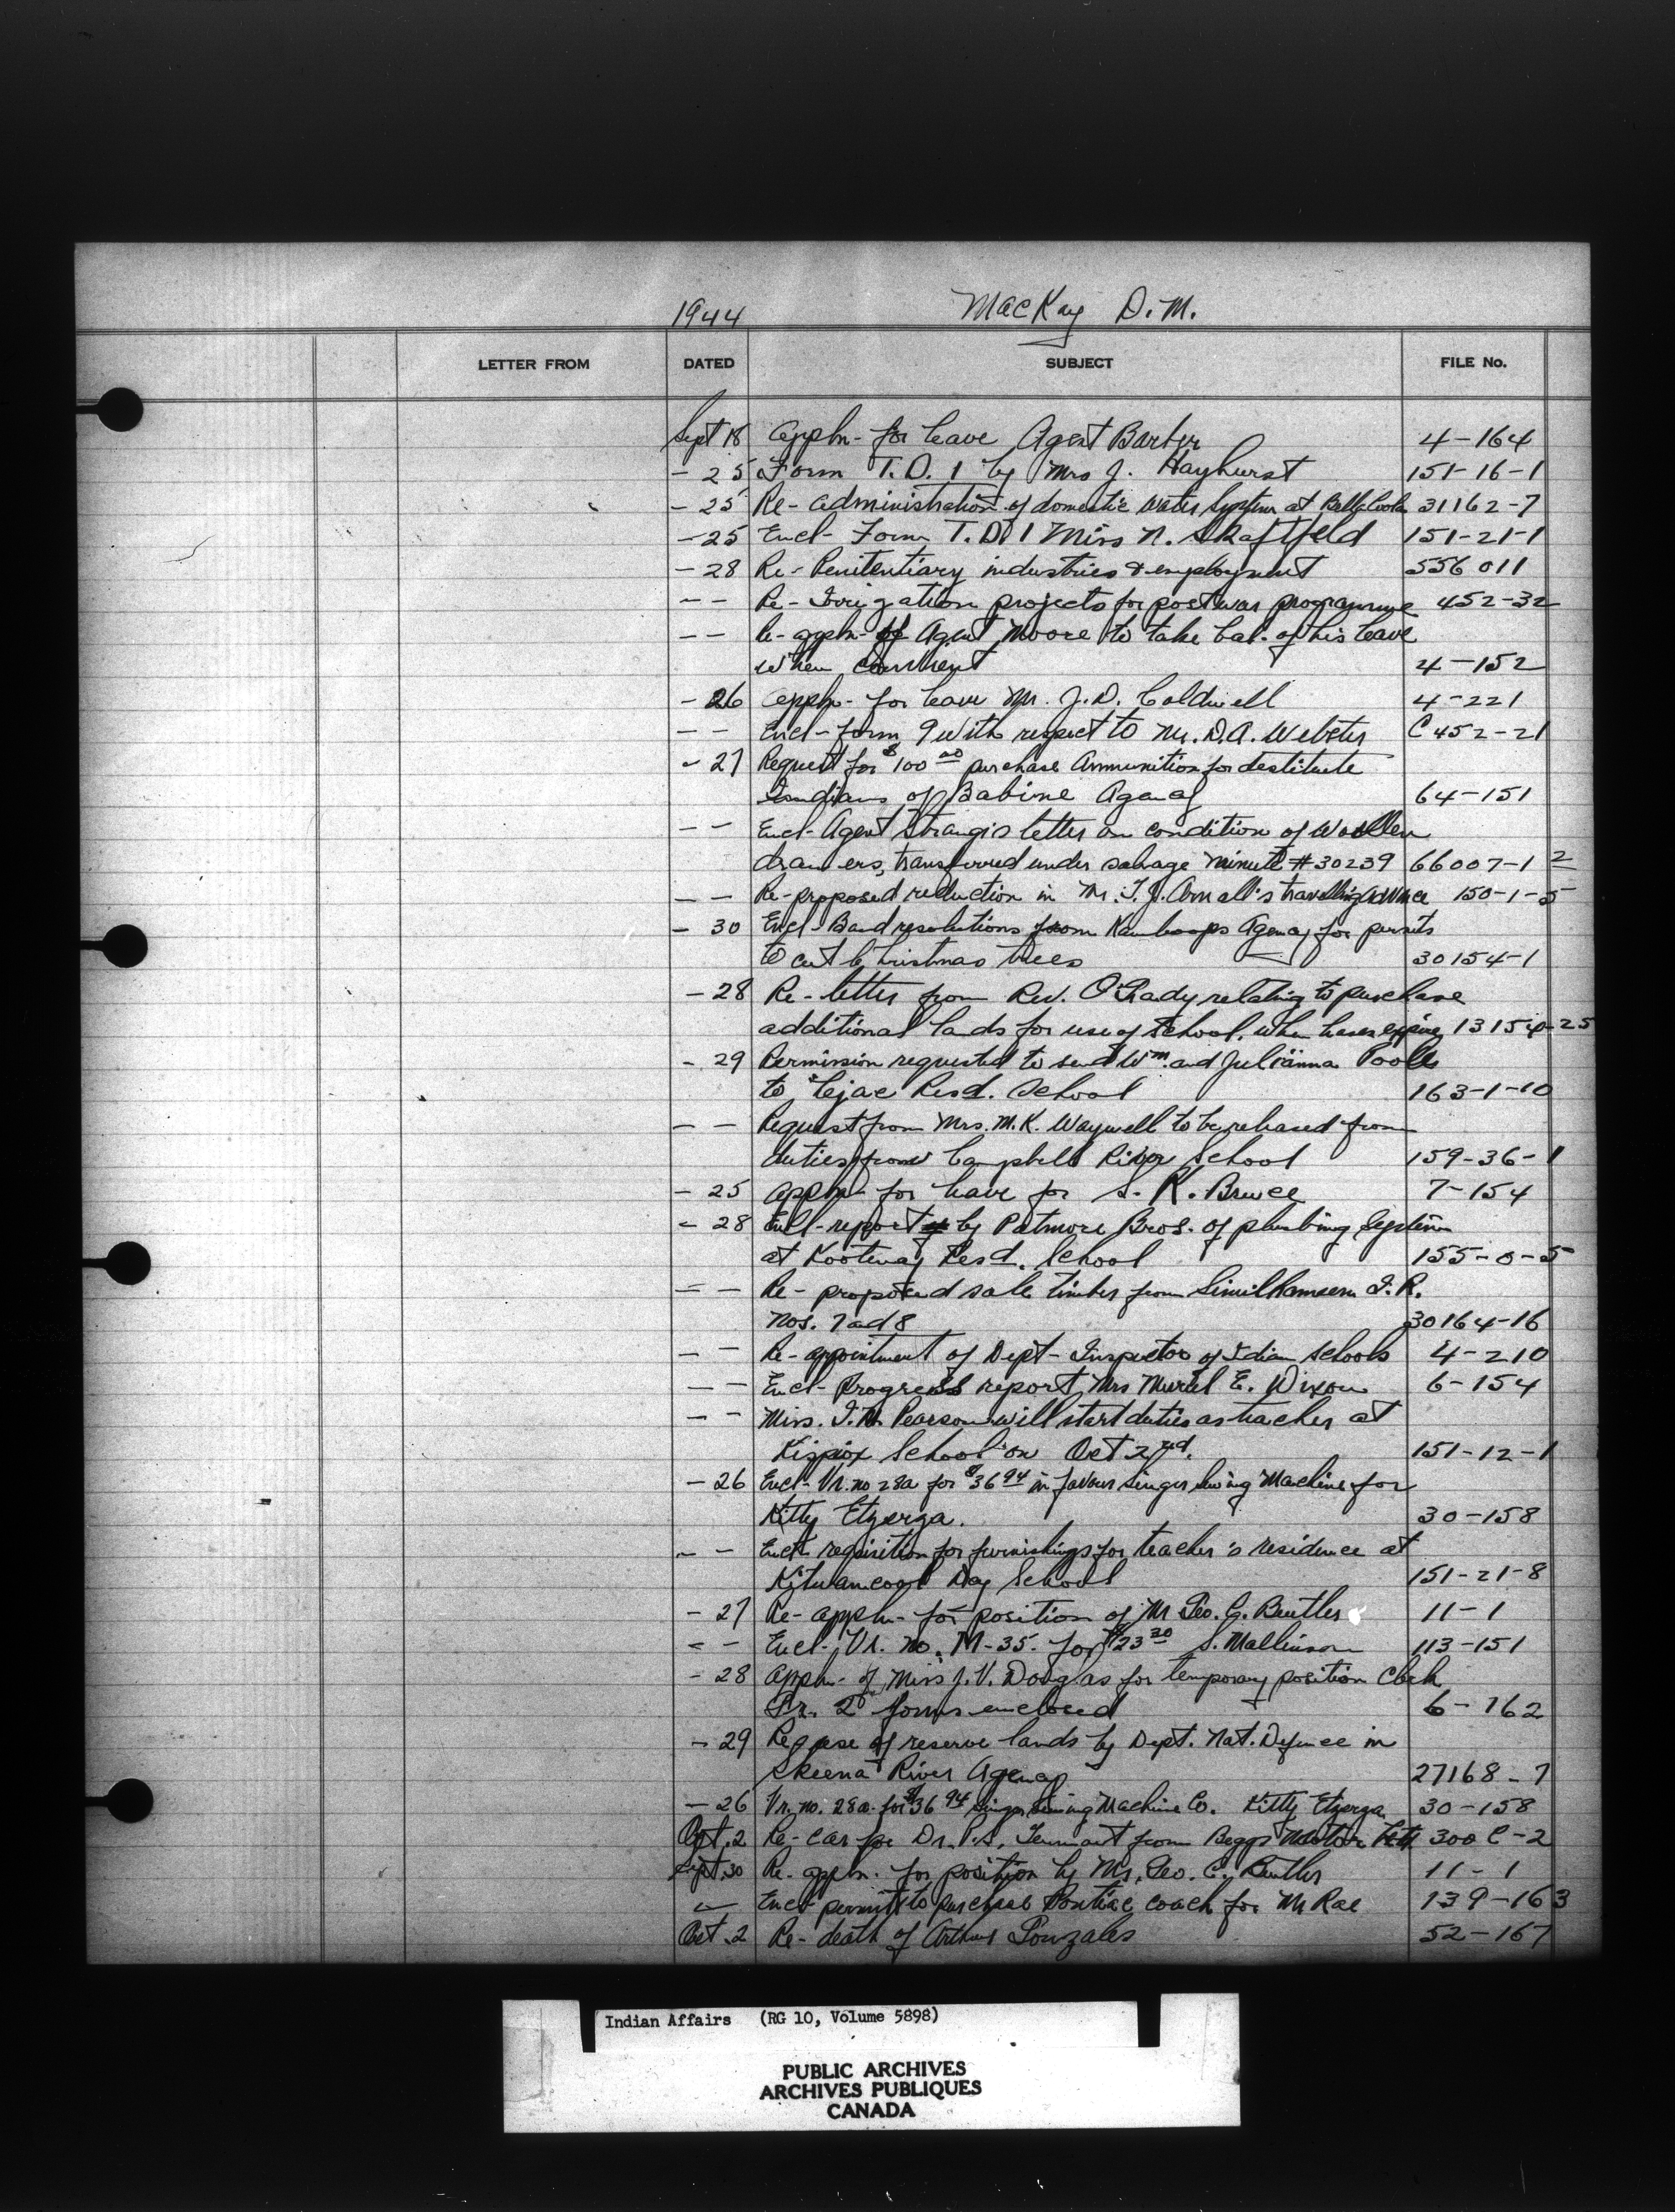 1944 MacKay D.M.
LETTER FROM DATED SUBJECT FILE No.
Sept 18 Appln- for leave Agent Barber 4-164
- 25 Form T.D.1 by Mrs J. Hayhurst 151-16-1
- 25 Re- administration of domestic water system at Bella Coola 31162-7
- 25 Encl- Form T.D.1 Miss N. 151-21-1
- 28 Re- Penitentiary industries & employment 556011
- - Re- Irrigation projects for postwar programme 452-32
- - Re- appln- of Agent Moore to take bal. of his leave
when 4-152
- 26 Appln- for leave Mr. J.D. Caldwell 4-221
- - Encl- form 9 with respect to Mr. D.A. Webster C 452-21
- 27 Request for $100 00 purchase Ammunition for destitute
Indians of Babine Agency 64-151
- - Encl- Agent Strang's letter on condition of Woollen
drawers, transferred under salvage minute #30239 66007-1 2
- - Re- proposed reduction in Mr. T.J. Arnall's travelling advance 150-1-5
- 30 Encl- Band resolutions from Kamloops Agency for permits
to cut Christmas trees 30154-1
- 28 Re- letter from Rev. O'Grady relating to purchase
additional lands for use of school when leases expire 13154-25
- 29 Permission requested to send Wm. and Julianna Poole
to Lejac Resd. School 163-1-10
- - Request from Mrs. M.K. Waywell to be released from
duties from Campbell River School 159-36-1
- 25 Appln- for leave for S. K. Bruce 7-154
- 28 Encl- report by Patmore Bros. of plumbing system
at Kootenay Resd. School 155-0-5
- - Re- proposed sale timber from Similkameen I.R.
Nos. 7 and 8 30164-16
- - Re- appointment of Dept- Inspector of Indian Schools 4-210
- - Encl- Progress report Mrs Muriel E. Dixon 6-154
- - Miss. I. Pearson will start duties as teacher at
Kispiox School on Oct 2nd. 151-12-1
- 26 Encl- Vr. no 28a for $36 94 in favour Singer Sewing Machine for
Kitty Etzerza. 30-158
- - Encl- requisition for furnishings for teacher's residence at
Kitwancool Day School 151-21-8
- 27 Re- appln- for position of Mr Geo. C. Beutler 11-1
- - Encl- Vr. no. M-35. for $23 30 S. Mallinson 113-151
- 28 Appln- of Miss J.V. Douglas for temporary position Clerk
Gr. 2 forms enclosed 6-162
- 29 Re use of reserve lands by Dept. Nat. Defence in
Skeena River Agency 27168-7
- 26 Vr. no. 28a for $36 94 Singer Sewing Machine Co. Kitty Etzerza 30-158
Oct. 2 Re- car for Dr. P.S. Tennant from Beggs Motor 300 C-2
Sept. 30 Re- appln. for position by Mr. Geo. C. Beutler 11-1
- Encl- permit to purchase Pontiac coach for Mr Rae 139-163
Oct. 2 Re- death of Arthur Gonzales 52-167
Indian Affairs (RG 10, Volume 5898)
PUBLIC ARCHIVES
ARCHIVES PUBLIQUES
CANADA